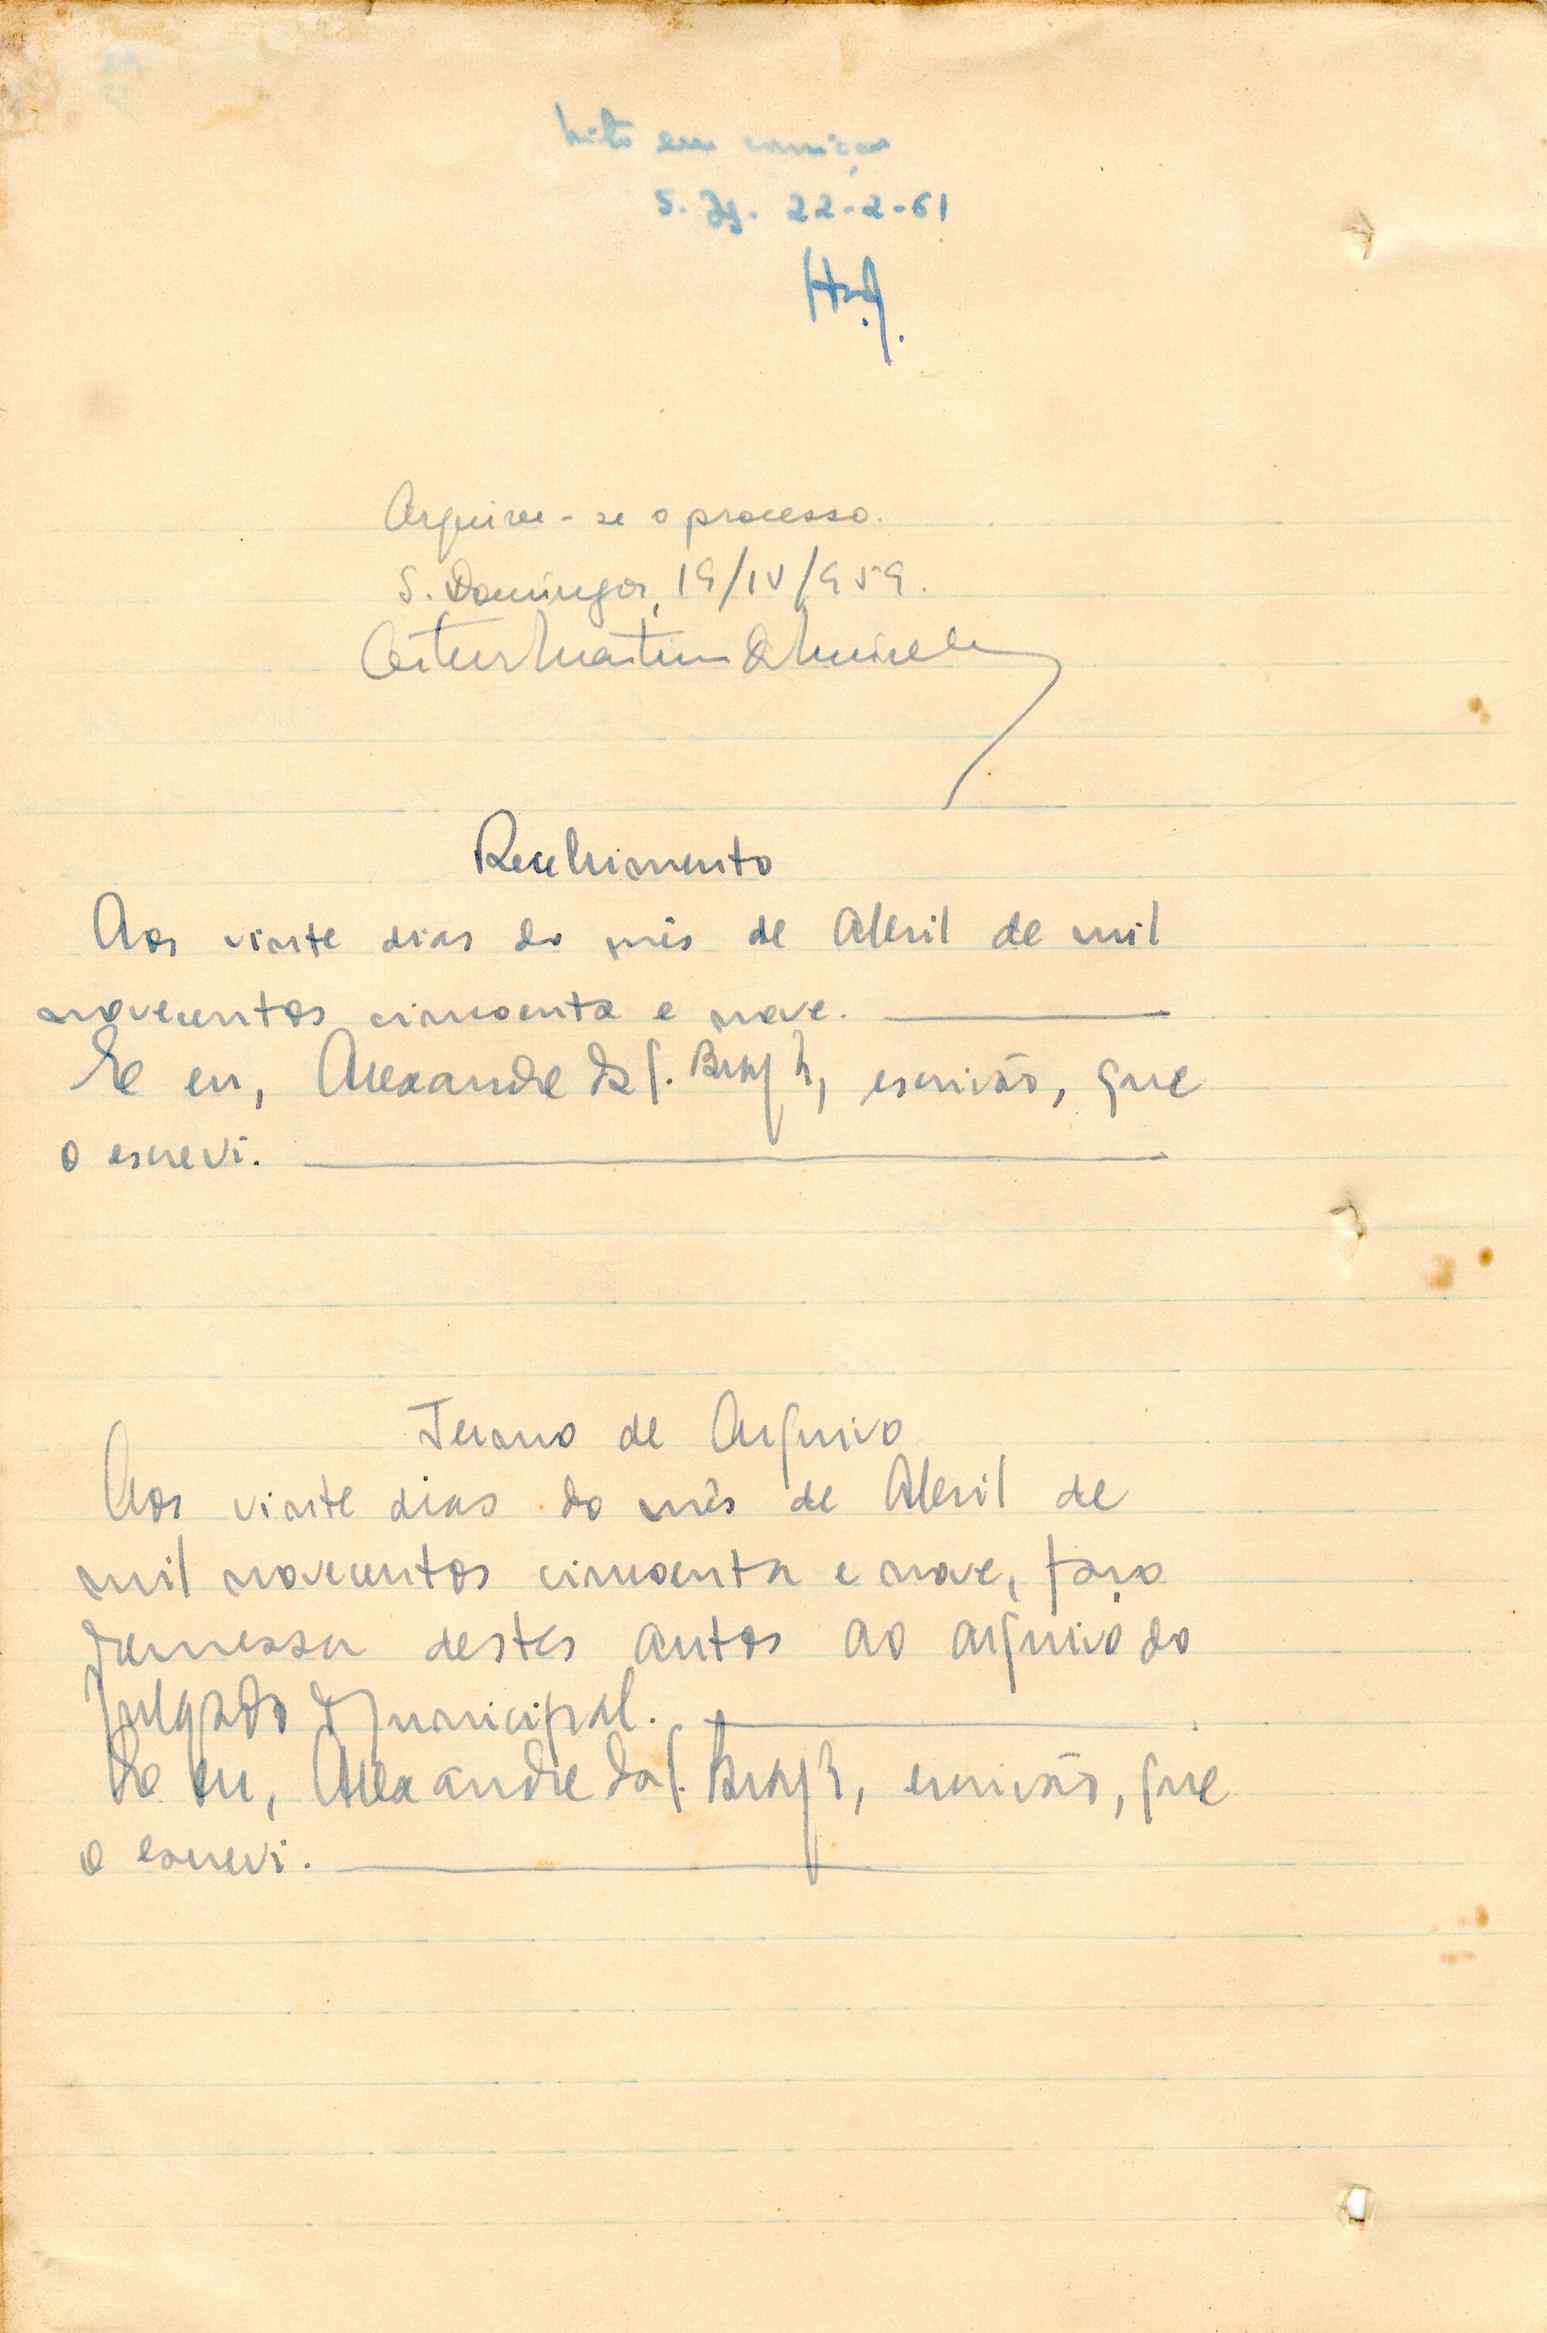 Visto em correição
S. Dgs. 22-2-61
Arquive-se o processo.
S. Domingos, 19/IV/959.
Artur Martins de Meireles
Recebimento
Aos vinte dias do mês de Abril de mil
novecentos cincoenta e nove.
E eu, Alexandre da S. , escrivão, que
o escrevi.
Termo de Arquivo
Aos vinte dias do mês de Abril de
mil novecentos cincoenta e nove, faço
remessa destes autos ao arquivo do
Julgado Municipal.
E eu, Alexandre da S. , escrivão, que
o escrevi.